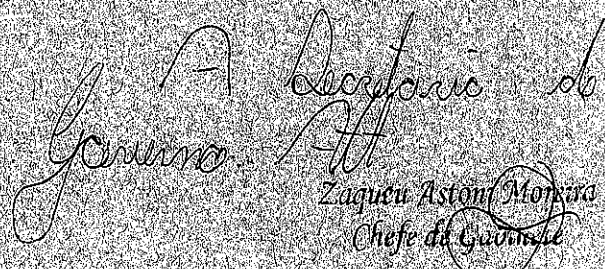 A Secretaria de
Governo. Att
Zaqueu Astoni Moreira
Chefe de Gabinete